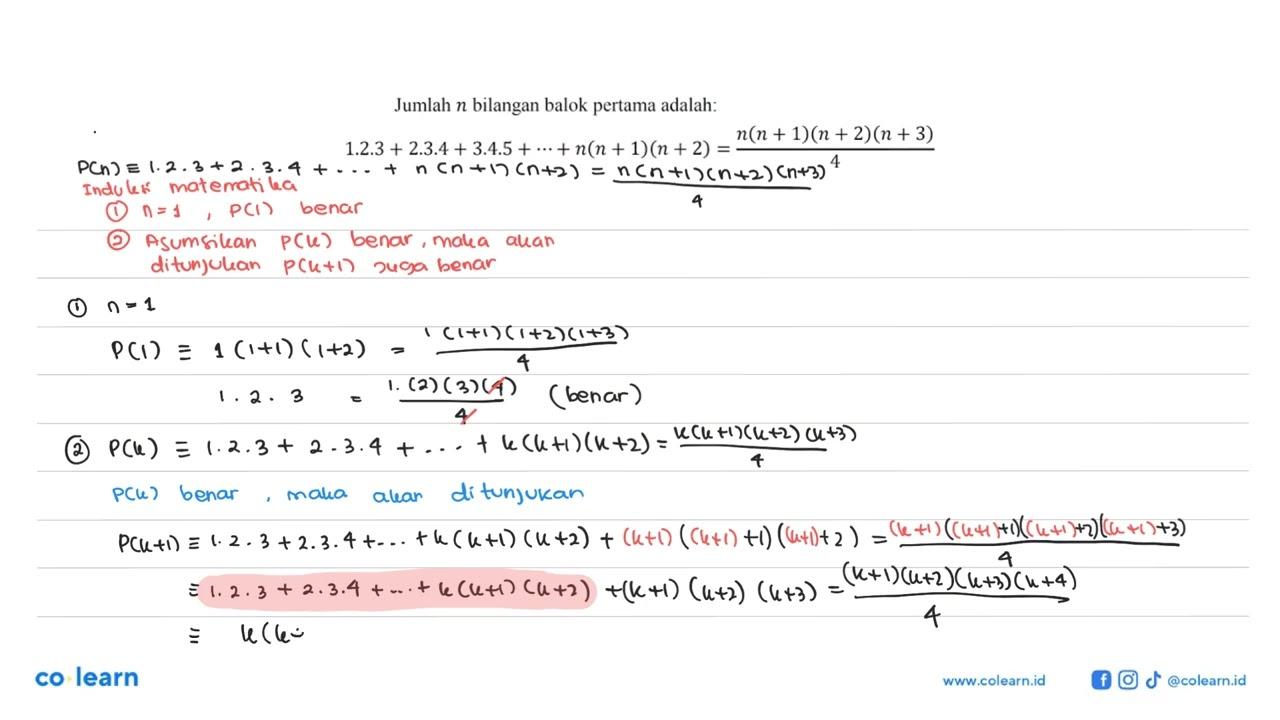 Jumlah n bilangan balok pertama adalah:
1.2.3 + 2.3.4 + 3.4.5 + ⋯ + n(n + 1)(n + 2) = n(n + 1)(n + 2)(n + 3) / 4
P(n) ≡ 1.2.3 + 2.3.4 + .... + n(n+1)(n+2) = n(n+1)(n+2)(n+3) / 4
Induksi matematika
① n=1 , P(1) benar
② Asumsikan P(k) benar, maka akan
ditunjukan P(k+1) juga benar
① n=1
P(1) ≡ 1(1+1)(1+2) = 1(1+1)(1+2)(1+3) / 4
1.2.3 = 1.(2)(3)(4) / 4 (benar)
② P(k) ≡ 1.2.3 + 2.3.4 + .... + k(k+1)(k+2) = k(k+1)(k+2)(k+3) / 4
P(k) benar , maka akan ditunjukan
P(k+1) ≡ 1.2.3 + 2.3.4 + ... + k(k+1)(k+2) + (k+1)((k+1)+1)((k+1)+2) = (k+1)((k+1)+1)((k+1)+2)((k+1)+3) / 4
≡ 1.2.3 + 2.3.4 + ... + k(k+1)(k+2) + (k+1)(k+2)(k+3) = (k+1)(k+2)(k+3)(k+4) / 4
≡ k(k
co learn
www.colearn.id
@colearn.id